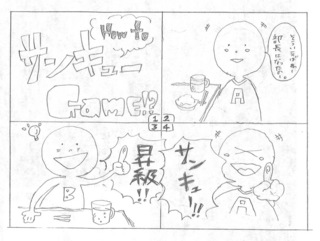 How To
サンキュー
Game!?
そういえば
部長に
A
1 2
3 4
B
昇級!!
サンキュー!!
A